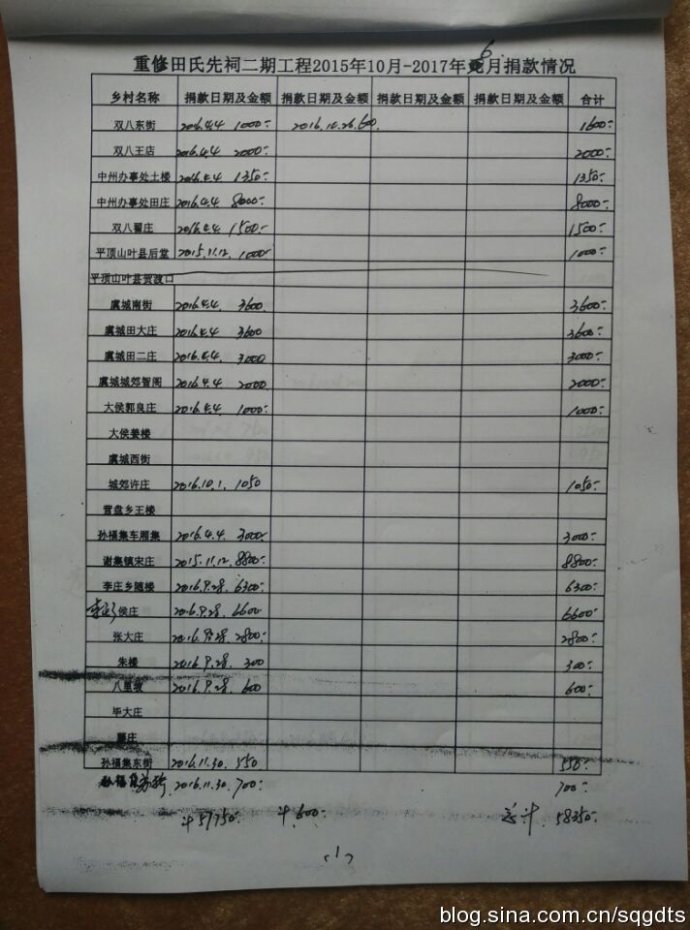 重修田氏先祠二期工程2015年10月-2017年6月捐款情况
乡村名称 捐款日期及金额 捐款日期及金额 捐款日期及金额 捐款日期及金额 合计
双八东街 2016.4.4 1000 2016.10.26.600 1600
双八王店 2016.4.4 2000 2000
中州办事处土楼 2016.4.4 1350 1350
中州办事处田庄 2016.4.4 8000 8000
双八翟庄 2016.4.4 1500 1500
平顶山叶县后堂 2015.11.12. 1000 1000
平顶山叶县贺渡口
虞城南街 2016.4.4. 3600 3600
虞城田大庄 2016.4.4 3600 3600
虞城田二庄 2016.4.4. 3000 3000
虞城城郊智阁 2016.4.4 2000 2000
大侯郭良庄 2016.4.4 1000 1000
大侯姜楼
虞城西街
城郊许庄 2016.10.1. 1050 1050
营盘乡王楼
孙福集车厢集 2016.4.4. 3000 3000
谢集镇宋庄 2015.11.12 8800 8800
李庄乡随楼 2016.9.28. 6300 6300
侯庄 2016.9.28. 6600 6600
张大庄 2016.9.28. 2800 2800
朱楼 2016.9.28. 300 300
八里坡 2016.9.28 600 600
毕大庄
庄
孙福集东街 2016.11.30. 550 550
孙福集 2016.11.30. 700 700
计57750 计600 总计. 58350
(1)
blog.sina.com.cn/sqgdts